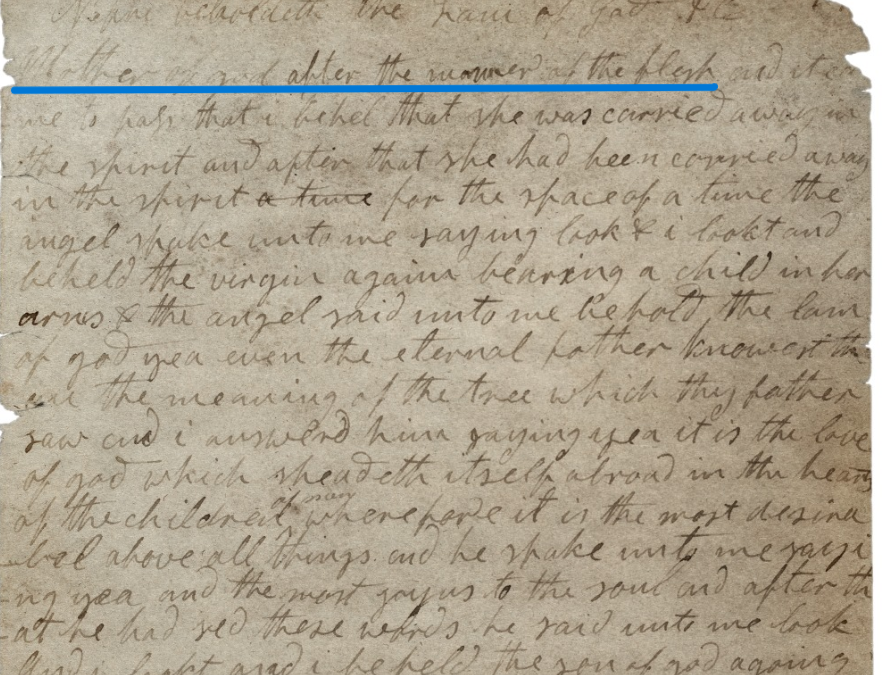 Nephi beholdeth the lam of god &c
Mother of god after the manner of the flesh and it ca
me to pass that i behel that she was carried away in
the spirit and after that she had been carried away
in the spirit a time for the space of a time the
angel spake unto me saying look & i lookt and
beheld the virgin again bearing a child in her
arms & the angel said unto me behold the lam
of god yea even the eternal father knowest th
ou the meaning of the tree which thy father
saw and i answerd him saying yea it is the love
of god which sheadeth itself abroad in the hearts
of the children of men wherefore it is the most desira
bel above all things and he spake unto me sayi
ng yea and the most joyus to the soul and after th
at he had sed these words he said unto me look
and i lookt and i beheld the son of god agoing